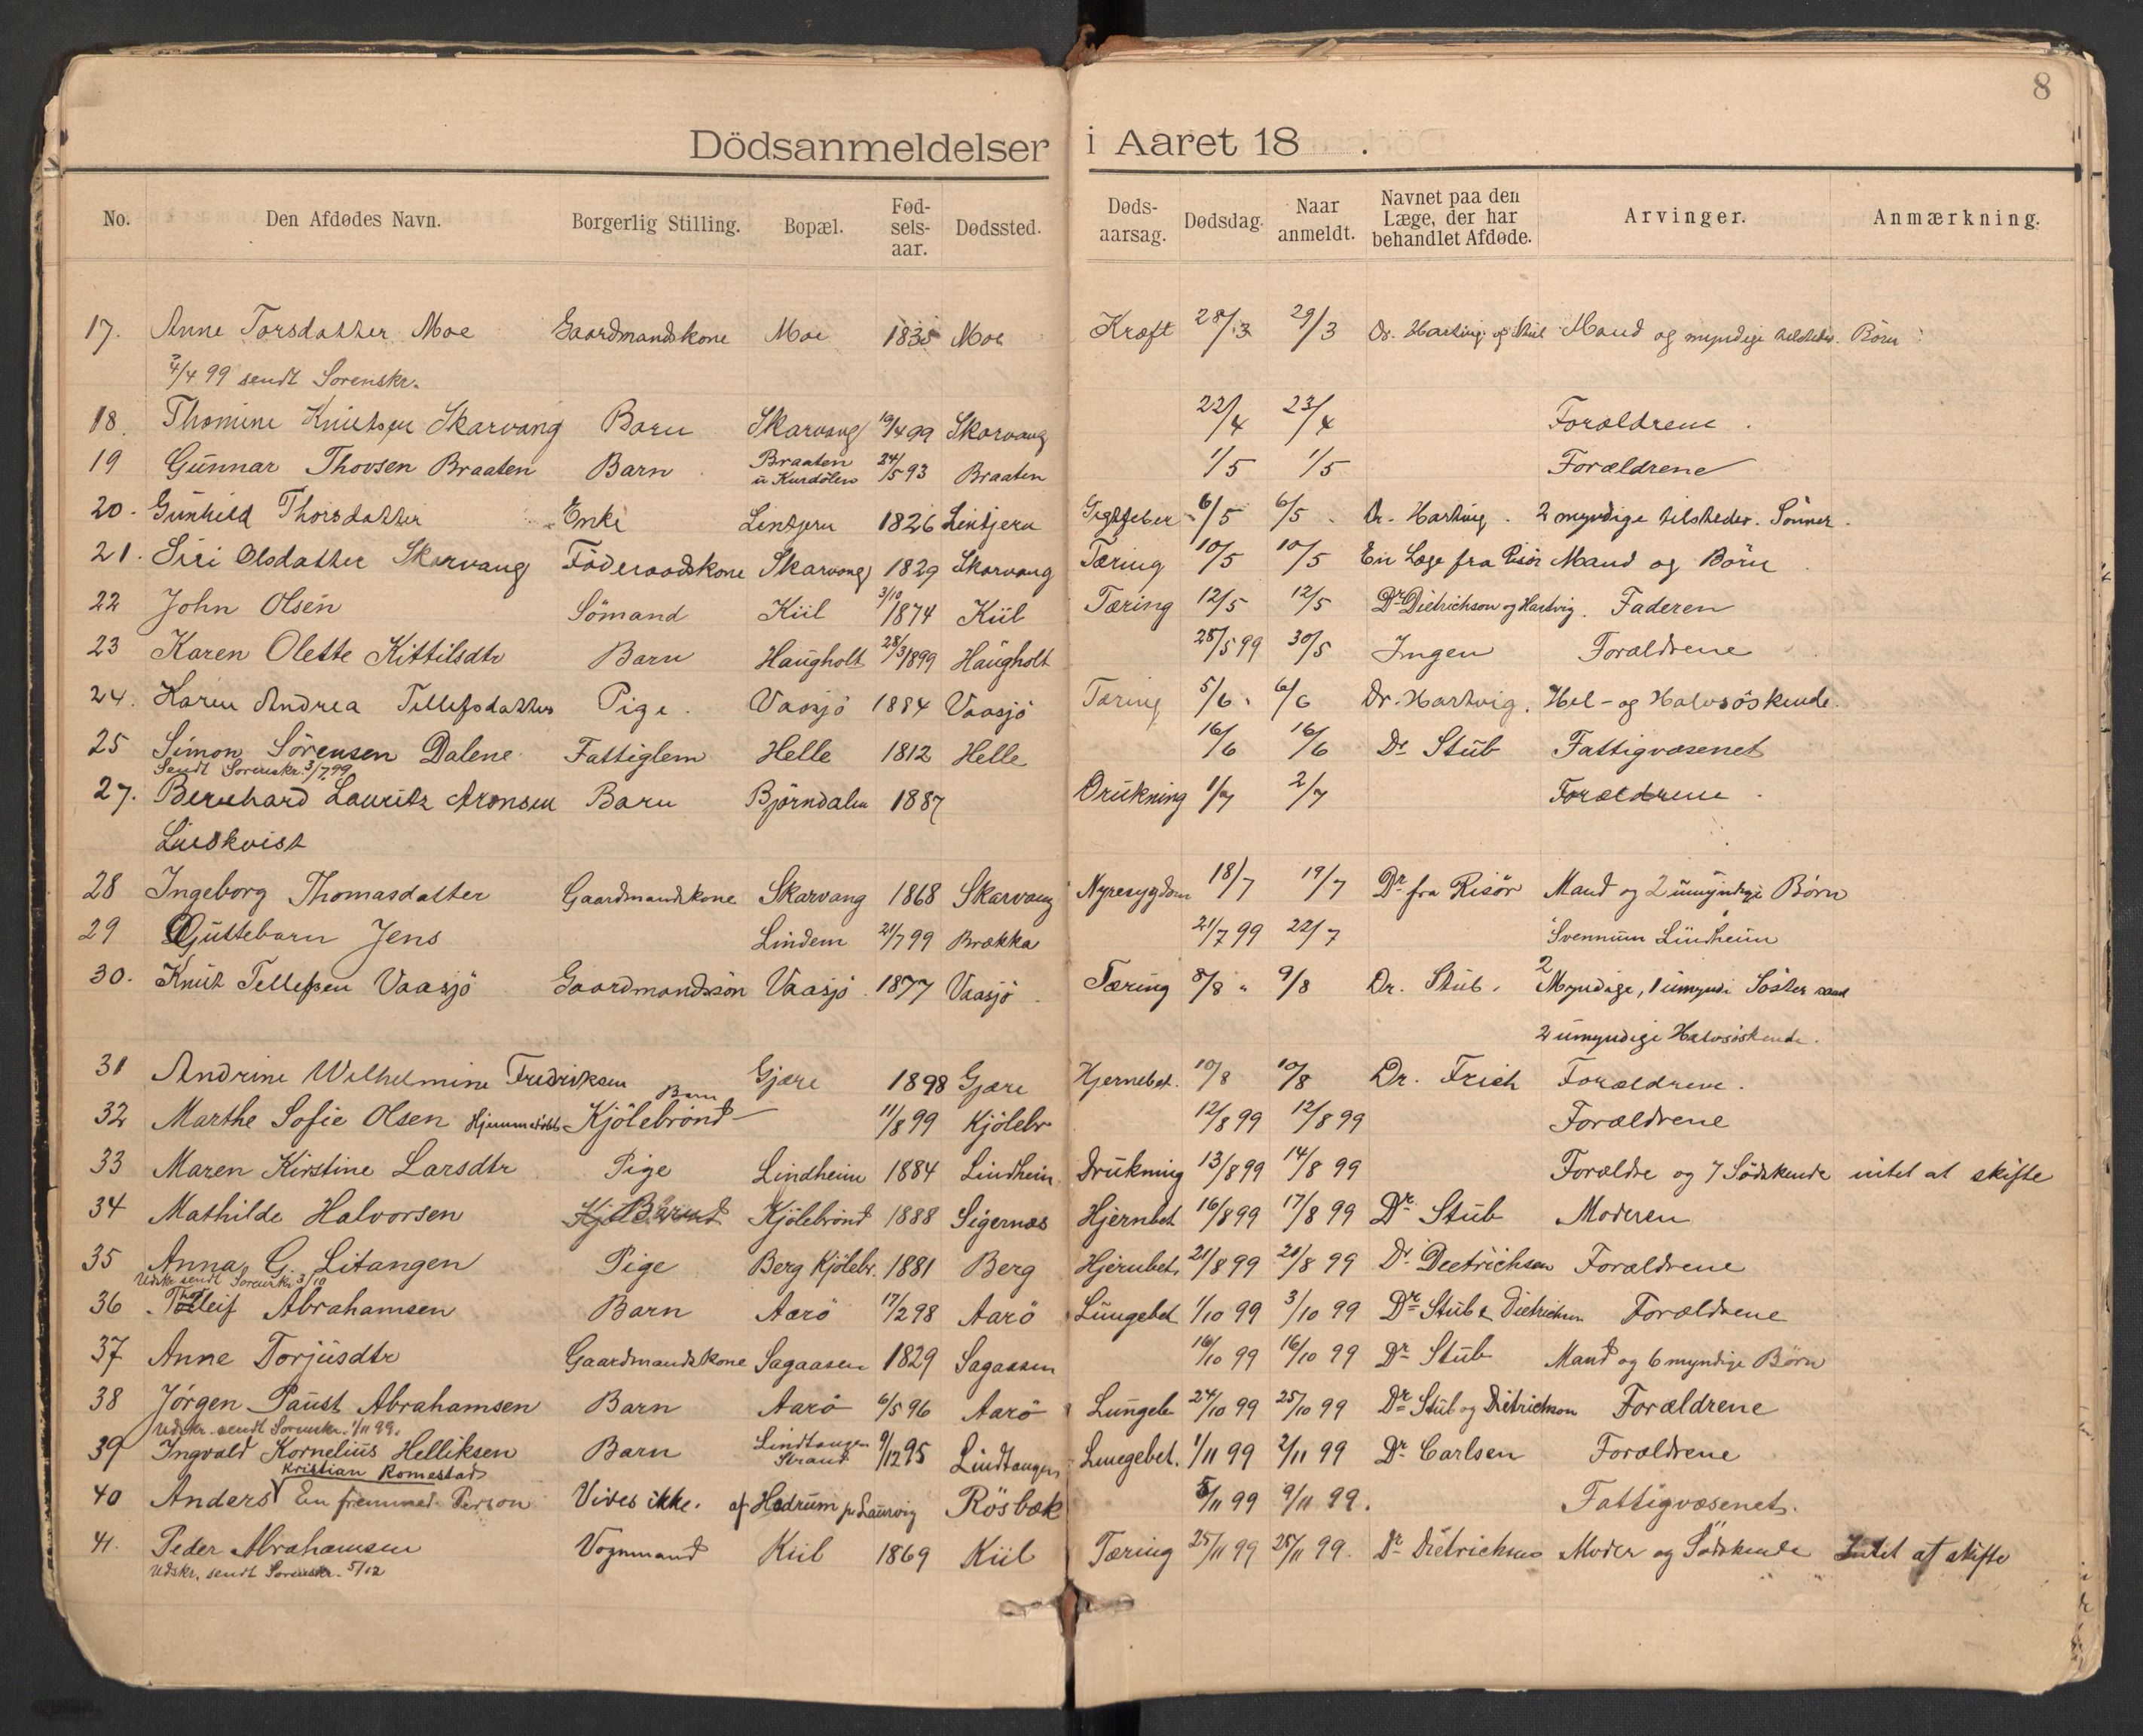 8
Dödsanmeldelser i Aaret 18 .
No. Den Afdødes Navn. Borgerlig Stilling. Bopæl. Fødselsaar. Dødssted. Dødsaarsag. Dødsdag. Naar anmeldt. Navnet paa den Læge, der har behandlet Afdøde. Arvinger. Anmærkning.
17. Anne Torsdatter Moe Gaardmandskone Moe 1835 Moe Kræft 28/3 29/3 Dr. Hartvig og Stub Mand og myndige tilstedev. Börn
4/4 99 sendt Sorenskr.
18. Thomine Knutsen Skarvang Barn Skarvang 19/4 99 Skarvang 22/4 23/4 Forældrene .
19 Gunnar Thovsen Braaten Barn Braaten u Kurdölen 24/5 93 Braaten 1/5 1/5 Forældrene
20. Gunhild Thorsdatter Enke Lintjern 1826 Lintjern Gigtfeber 6/5 6/5 Dr. Hartvig. 2 myndige tilstedev. Sönner.
21. Siri Olsdatter Skarvang Föderaadskone Skarvang 1829 Skarvang Tæring 10/5 10/5 En Læge fra Risör Mand og Börn
22 John Olsen Sömand Kiil 3/10 1874 Kiil Tæring 12/5 12/5 Dr Dietrichson og Hartvig. Faderen
23 Karen Olette Kittilsdtr Barn Haugholt 28/3 1899 Haugholt 28/5 99 30/5 Ingen Forældrene
24. Karen Andrea Tellefsdatter Pige. Vaasjö 1884 Vaasjö Tæring 5/6 " 6/6 Dr. Hartvig. Hel- og Halvsöskende.
25 Simon Sörensen Dalene Fattiglem Helle 1812 Helle 16/6 16/6 Dr Stub Fattigvæsenet
Sendt Sorenskr. 3/7 99
27. Bernhard Lauritz Aronsen Barn Björndalen 1887 Drukning 1/7 2/7 Forældrene .
Lindkvist
28 Ingeborg Thomasdatter Gaardmandskone Skarvang 1868 Skarvang Nyresygdom 18/7 19/7 Dr fra Risör Mand og 2 umyndige Börn
29 Guttebarn Jens Lindem 21/7 99 Brække 21/7 99 22/7 Svennum Lindheim
30. Knut Tellefsen Vaasjö Gaardmandssön Vaasjö 1877 Vaasjö Tæring 8/8 " 9/8 Dr. Stub. 2 Myndige, 1 umyndi Söster samt
2 umyndige Halvsöskende.
31 Andrine Wilhelmine Fredriksen Barn Gjære 1898 Gjære Hjernebet. 10/8 10/8 Dr. Frich Forældrene.
32 Marthe Sofie Olsen Hjemmedöbt Kjölebrönd 11/8 99 Kjölebr 12/8 99 12/8 99 Forældrene
33 Maren Kirstine Larsdtr Pige Lindheim 1884 Lindheim Drukning 13/8 99 14/8 99 Forældre og 7 Södskende intet at skifte
34 Mathilde Halvorsen Barn Kjölebrönd 1888 Sigernæs Hjernbet 16/8 99 17/8 99 Dr Stub Moderen
35 Anna G. Litangen Pige Berg Kjölebr. 1881 Berg Hjernbet. 21/8 99 21/8 99 Dr Dietrichson Forældrene
Udskr. sendt Sorenskr. 3/10
36 Thorleif Abrahamsen Barn Aarö 17/2 98 Aarö Lungebet 1/10 99 3/10 99 Dr Stub & Dietrichson Forældrene
37 Anne Torjusdtr Gaardmandskone Sagaasen 1829 Sagaasen 16/10 99 16/10 99 Dr Stub Mand og 6 myndige Börn
38 Jörgen Paust Abrahamsen Barn Aarö 6/5 96 Aarö Lungeb 24/10 99 25/10 99 Dr Stub og Dietrichson Forældrene
Udskr. sendt Sorenskr. 1/11 99.
39 Ingvald Kornelius Helliksen Barn Lindtangen Strand 9/12 95 Lindtangen Lungebet. 1/11 99 2/11 99 Dr Carlsen Forældrene
Kristian Romestad
40 Anders En fremmed Person Vides ikke. af Hedrum pr Laurvig Rösbæk 5/11 99 9/11 99. Fattigvæsenet.
41. Peder Abrahamsen Vognmand Kiil 1869 Kiil Tæring 25/11 99 28/11 99. Dr Dietrichson Moder og Södskende Intet at skifte
Udskr. sendt Sorenskr. 5/12